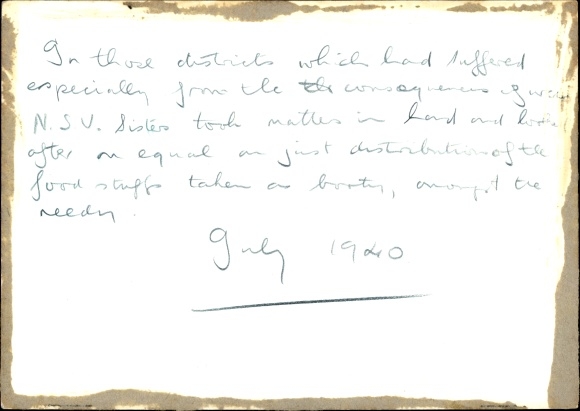 In those districts which had suffered
especially from the the consequences of war
N.S.V. Sisters took matters in hand and looked
after an equal an just distribution of the
food stuffs taken as booty, amongst the
needy.
July 1940